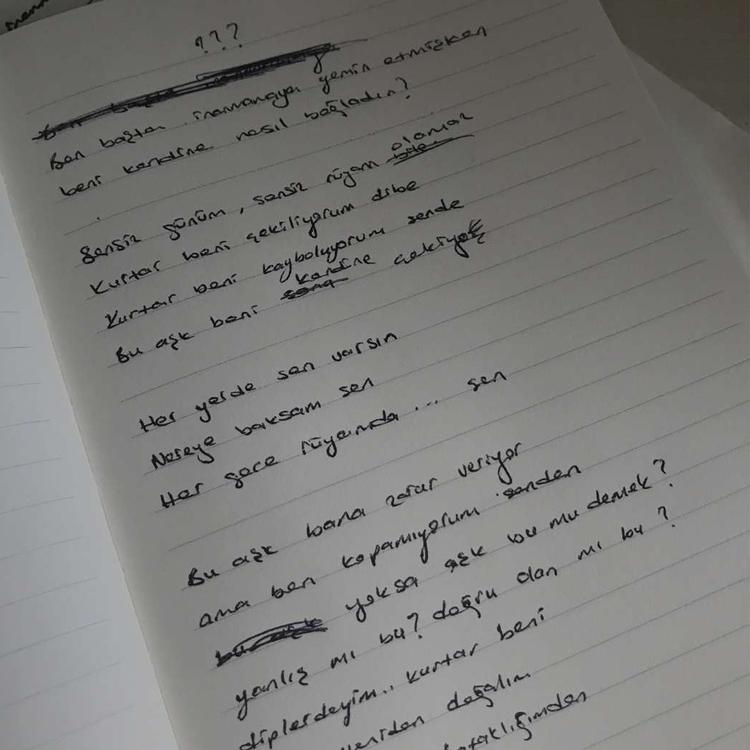 ???
Ben baştan inanmamaya yemin etmişken
beni kendine nasıl bağladın?
Sensiz günüm, sensiz rüyam olamaz
Kurtar beni çekiliyorum dibe
Kurtar beni kayboluyorum sende
Bu aşk beni kendine çekiyor
Her yerde sen varsın
Nereye baksam sen
Her gece rüyamda ... sen
Bu aşk bana zarar veriyor
ama ben kopamıyorum senden
yoksa aşk bu mu demek?
yanlış mı bu? doğru olan mı bu?
diplerdeyim.. kurtar beni
yeniden doğalım